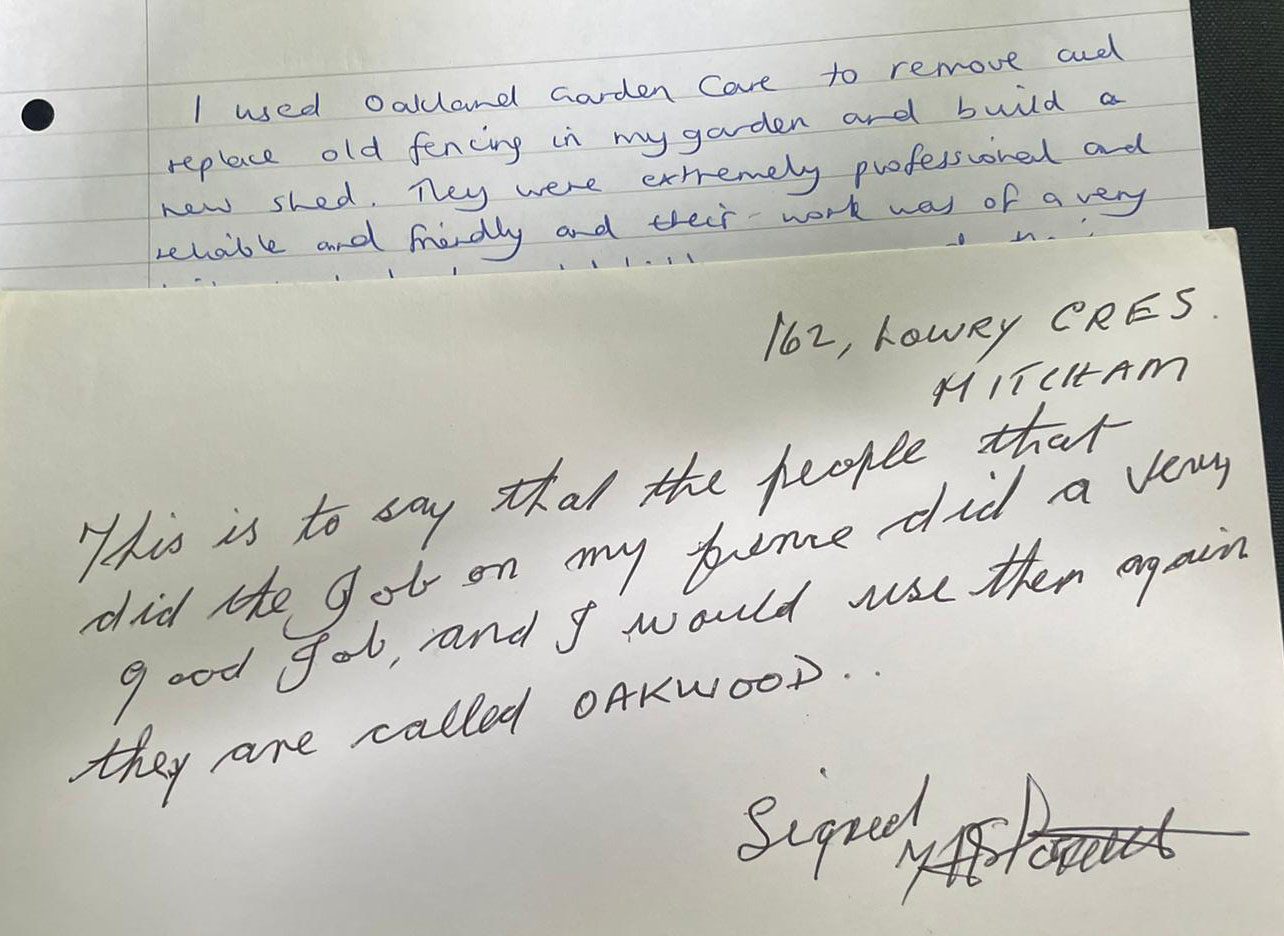 I used Oakland Garden Care to remove and
replace old fencing in my garden and build a
new shed. They were extremely professional and
reliable and friendly and their work was of a very
162, LOWRY CRES.
MITCHAM
This is to say that the people that
did the Job on my fence did a very
good Job, and I would use them again
they are called OAKWOOD..
Signed